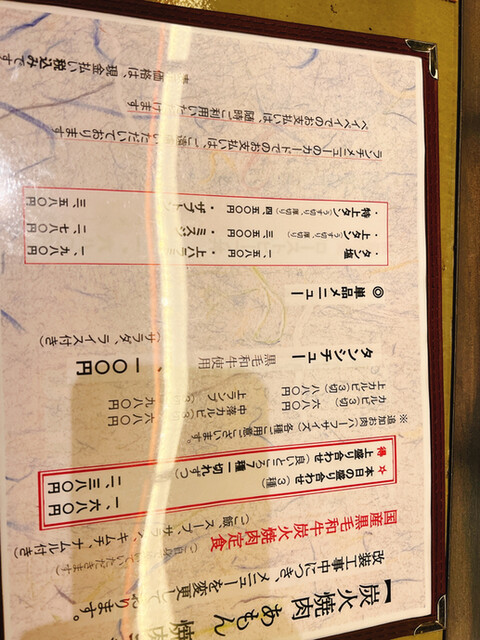 【炭火焼肉 あもん 焼肉
改装工事中につき、メニューを変更しております。
国産黒毛和牛 炭火焼肉定食
(ご飯、スープ、サラダ、キムチ、ナムル付き)
☆ 本日の盛り合わせ (3種) 一、六八〇円
得 上盛り合わせ (良いところ7種一切れずつ) 二、三八〇円
※ 追加お肉(ハーフサイズ)各種ご用意ございます。
カルビ(3切) 六八〇円 中落カルビ(3切) 六八〇円
上カルビ(3切) 八八〇円 上ランプ 九八〇円
タンシチュー 黒毛和牛使用 一〇〇円
(サラダ、ライス付き)
◎ 単品メニュー
・タン塩 一、五八〇円 ・上ハラミ 一、九八〇円
・上タン塩(うす切り、厚切り) 三、五〇〇円 ・ミスジ 二、七八〇円
・特上タン(うす切り、厚切り) 四、五〇〇円 ・ザブトン 三、五八〇円
ランチメニューのカードでのお支払いは、ご遠慮いただいております
ペイペイでのお支払いは、随時ご利用いただけます
価格は、現金払い税込みです